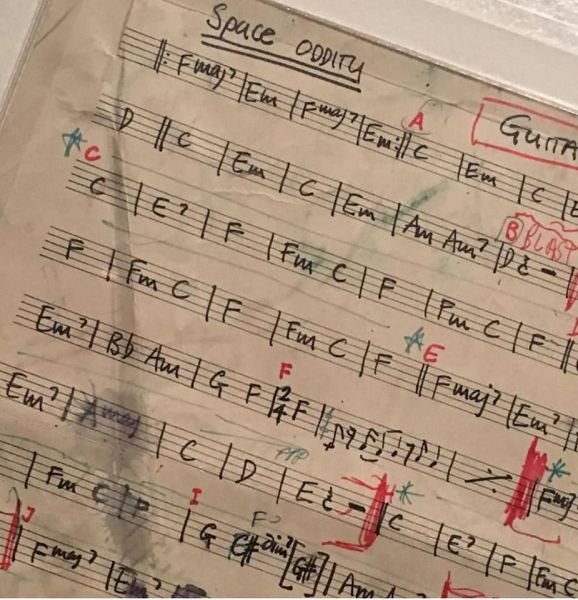 Space ODDITY
A
GUITA
Fmaj7 | Em | Fmaj7 | Em :|| C | Em | C | E
D || C | Em | C | Em | Am Am7 | D
* C
B BLAST
C | E7 | F | Fm C | F | Fm C | F
F | Fm C | F | Fm C | F || Fmaj7 | Em7
* E
Em7 | Bb Am | G F | 2/4 F
F
Em7 | Amaj | C | D | E || C | E7 | F | Fm C
*
* Fmaj
Fm C | F | G C#dim7 [G#7] | Am
I
F
J
Fmaj7 | Em7